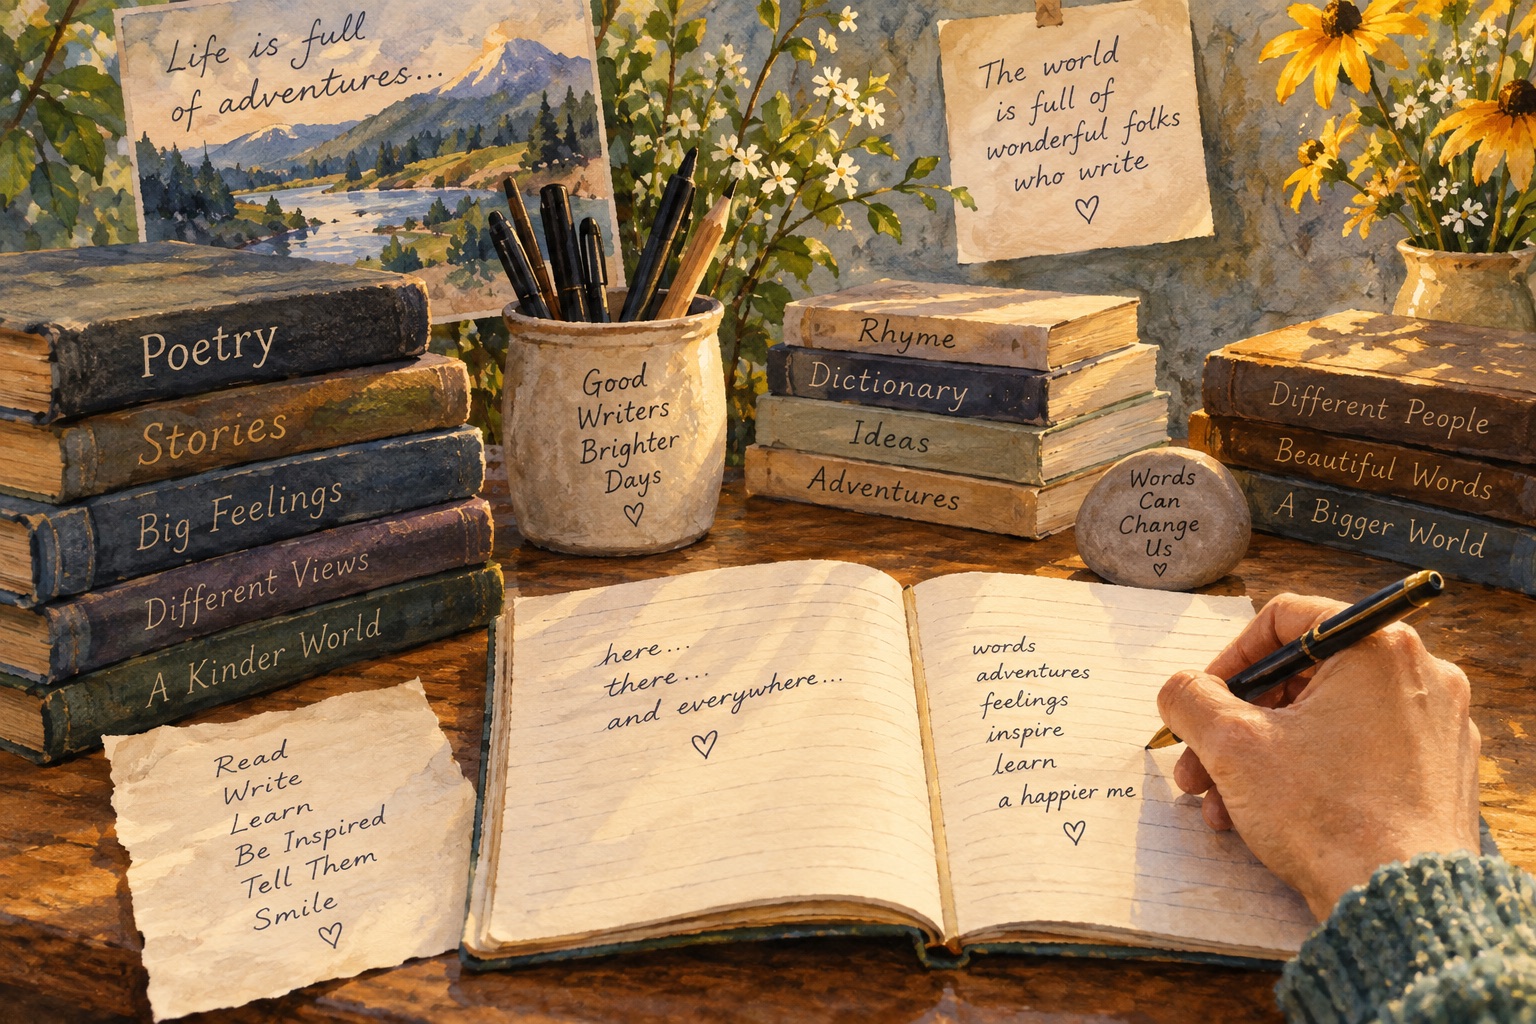 Life is full
of adventures...
The world
is full of
wonderful folks
who write
Poetry
Stories
Big Feelings
Different Views
A Kinder World
Good
Writers
Brighter
Days
Rhyme
Dictionary
Ideas
Adventures
Words
Can
Change
Us
Different People
Beautiful Words
A Bigger World
Read
Write
Learn
Be Inspired
Tell Them
Smile
here...
there...
and everywhere...
words
adventures
feelings
inspire
learn
a happier me